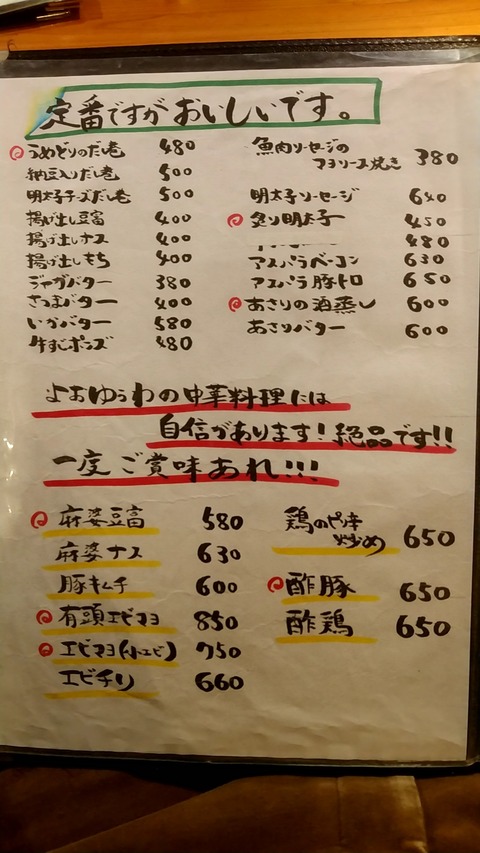 定番ですがおいしいです。
うめどりのだし巻 480
納豆入りだし巻 500
明太子チーズだし巻 500
揚げ出し豆富 400
揚げ出しナス 400
揚げ出しもち 400
ジャガバター 380
さつまバター 400
いかバター 580
牛すじポンズ 480
魚肉ソーセージの
マヨソース焼き 380
明太子ソーセージ 640
炙り明太子 450
480
アスパラベーコン 630
アスパラ豚トロ 650
あさりの酒蒸し 600
あさりバター 600
よおゆぅわの中華料理には
自信があります!絶品です!!
一度ご賞味あれ!!!
麻婆豆富 580
麻婆ナス 630
豚キムチ 600
有頭エビマヨ 850
エビマヨ(小エビ) 750
エビチリ 660
鶏のピリ辛
炒め 650
酢豚 650
酢鶏 650